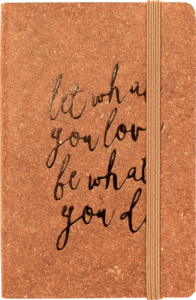 let wha
you lov
be what
you d